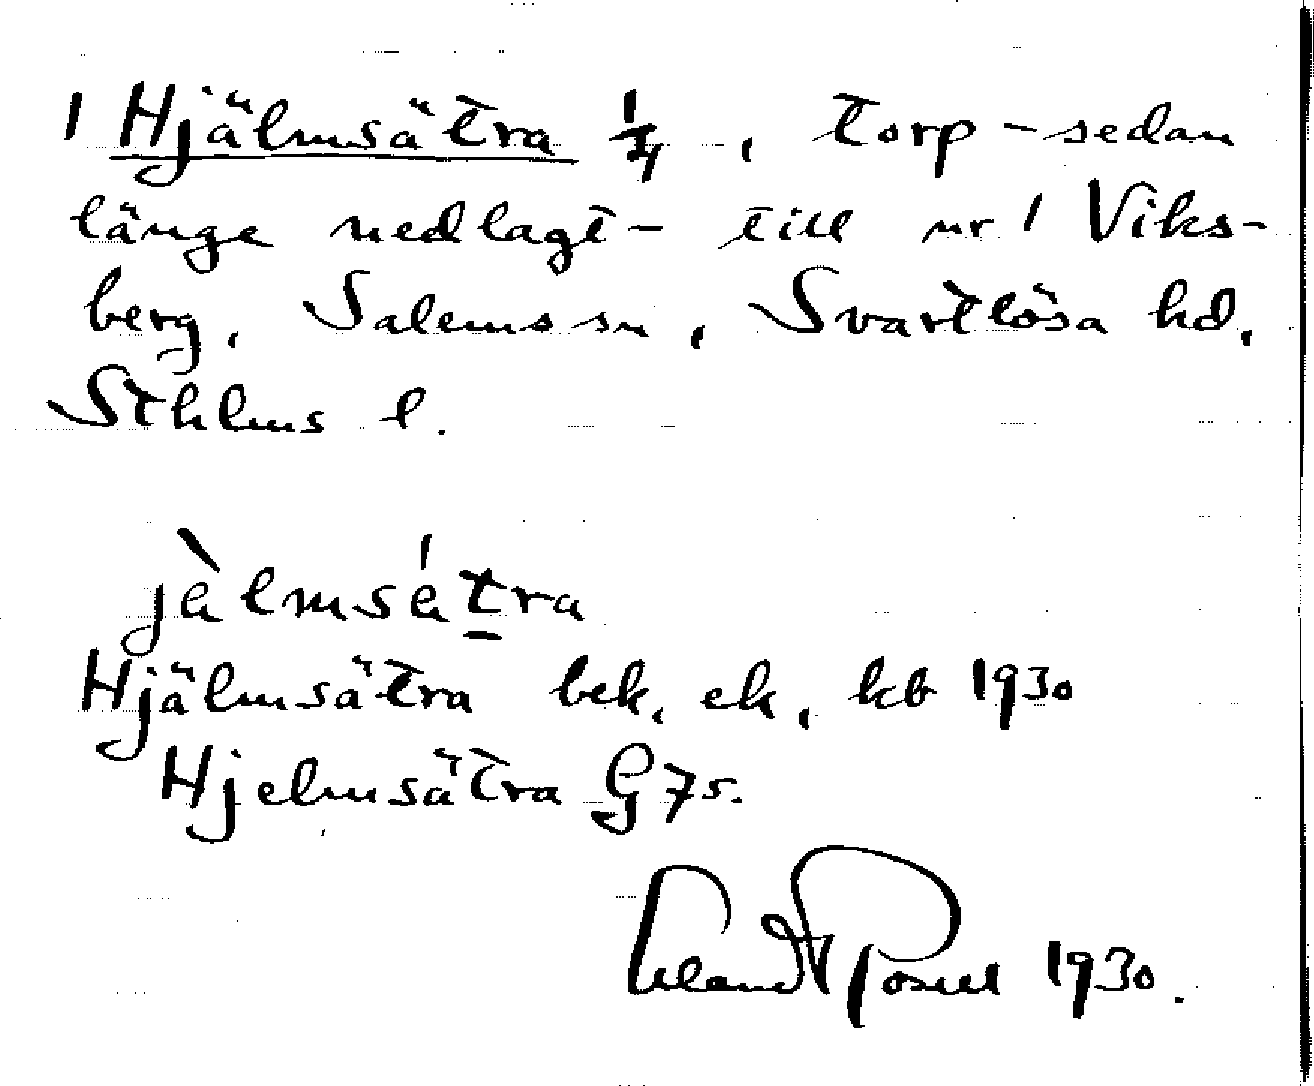 1 Hjälmsätra 1/4, torp - sedan
länge nedlagt - till nr 1 Viks-
berg, Salems sn, Svartlösa hd,
Sthlms l.
jὰlmsátra
Hjälmsätra bek, ek, kb 1930
Hjelmsätra G 75.
Erland Rosell 1930.